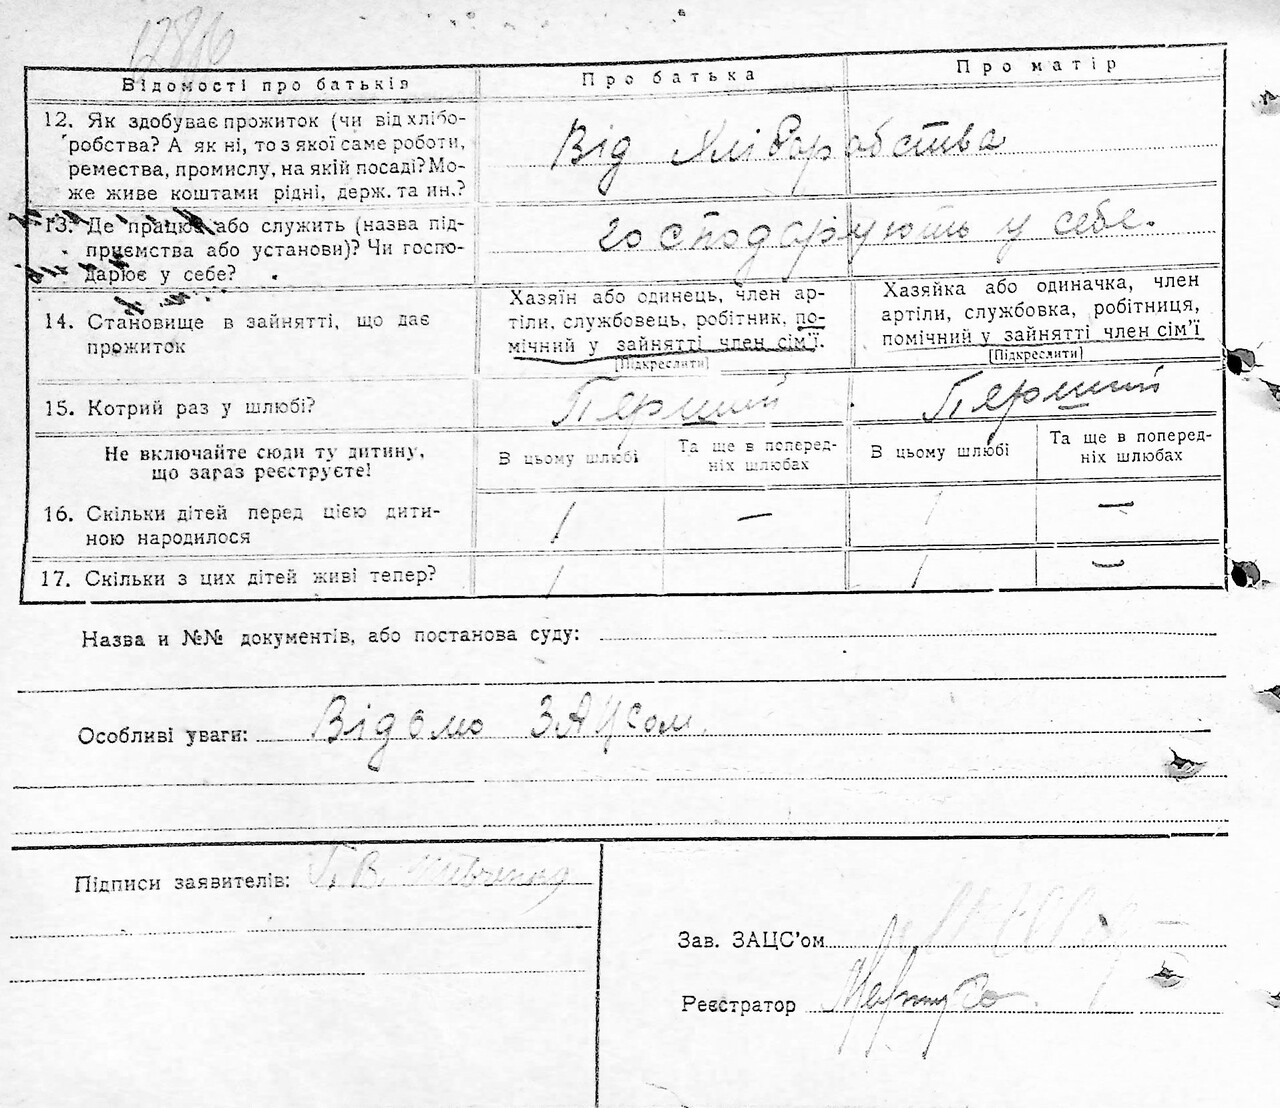 12816
Відомості про батьків
Про батька
Про матір
12. Як здобуває прожиток (чи від хлібо-
робства? А як ні, то з якої саме роботи,
ремества, промислу, на якій посаді? Мо-
же живе коштами рідні, держ. та ин.?
Від хліборобства
13. Де працює або служить (назва під-
приємства або установи)? Чи госпо-
дарює у себе?
господарують у себе.
14. Становище в зайнятті, що дає
прожиток
Хазяїн або одинець, член ар-
тіли, службовець, робітник, по-
мічний у зайнятті член сім'ї.
[Підкреслити]
Хазяйка або одиначка, член
артіли, службовка, робітниця,
помічний у зайнятті член сім'ї
[Підкреслити]
15. Котрий раз у шлюбі?
Перший
Перший
Не включайте сюди ту дитину,
що зараз реєструєте!
В цьому шлюбі
Та ще в поперед-
ніх шлюбах
В цьому шлюбі
Та ще в поперед-
ніх шлюбах
16. Скільки дітей перед цією дити-
ною народилося
1 — 1 —
17. Скільки з цих дітей живі тепер?
1 1 —
Назва и №№ документів, або постанова суду:
Особливі уваги: Відомо ЗАЦСом.
Підписи заявителів: П. В.
Зав. ЗАЦС'ом
Реєстратор